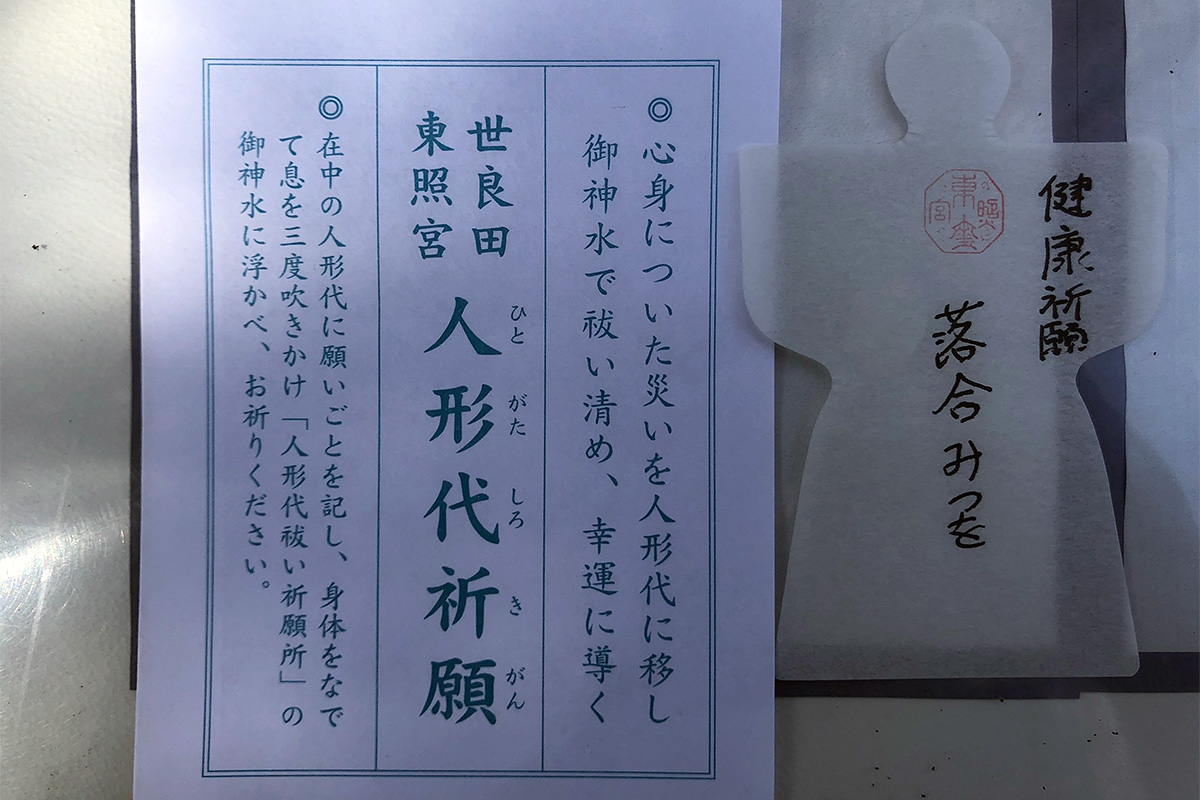 健康祈願
落合みつを
東照宮
◎心身についた災いを人形代に移し
御神水で祓い清め、幸運に導く
世良田
東照宮
人形代祈願
ひとがたしろきがん
◎在中の人形代に願いごとを記し、身体をなで
て息を三度吹きかけ「人形代祓い祈願所」の
御神水に浮かべ、お祈りください。